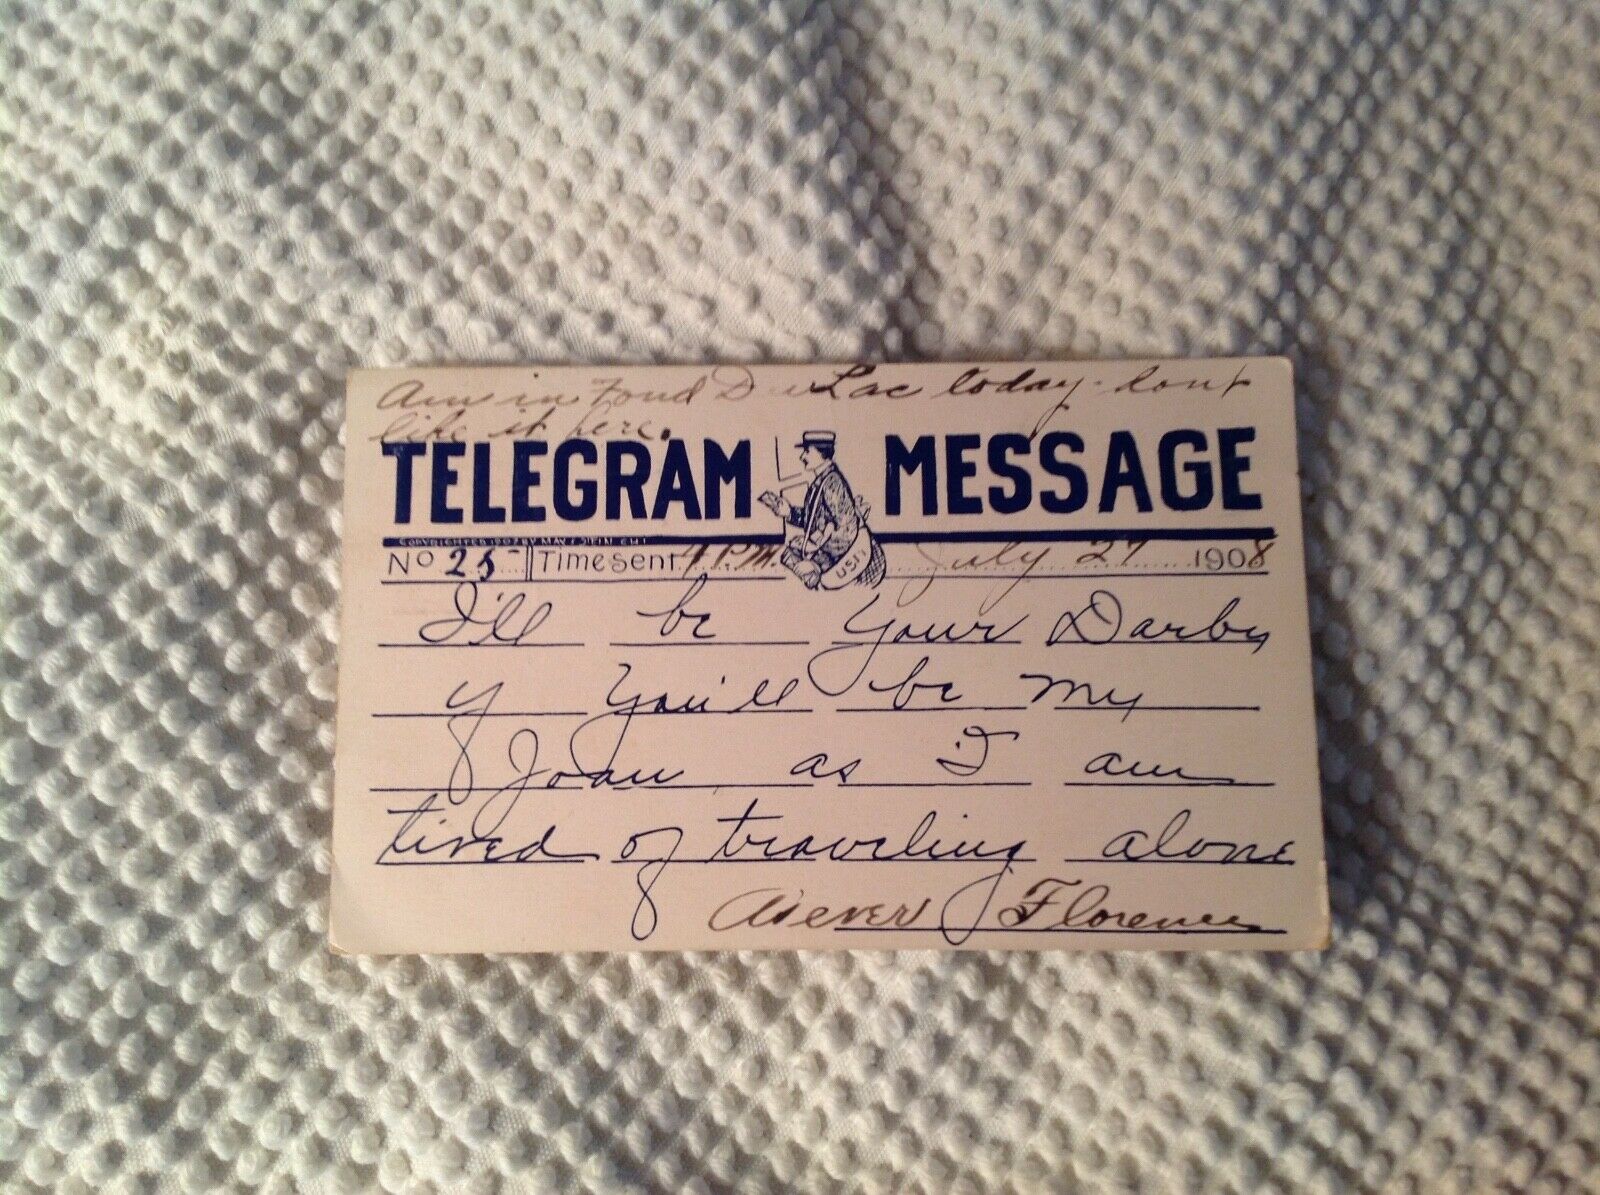 Am in Fond Du Lac today - dont
like it here.
TELEGRAM MESSAGE
COPYRIGHTED 1907 BY MAY CHI
No 25 Time sent 4 P.M. July 27 1908
USM
I'll be your Darby
if you'll be my
Joan as I am
tired of traveling alone
As ever Florence